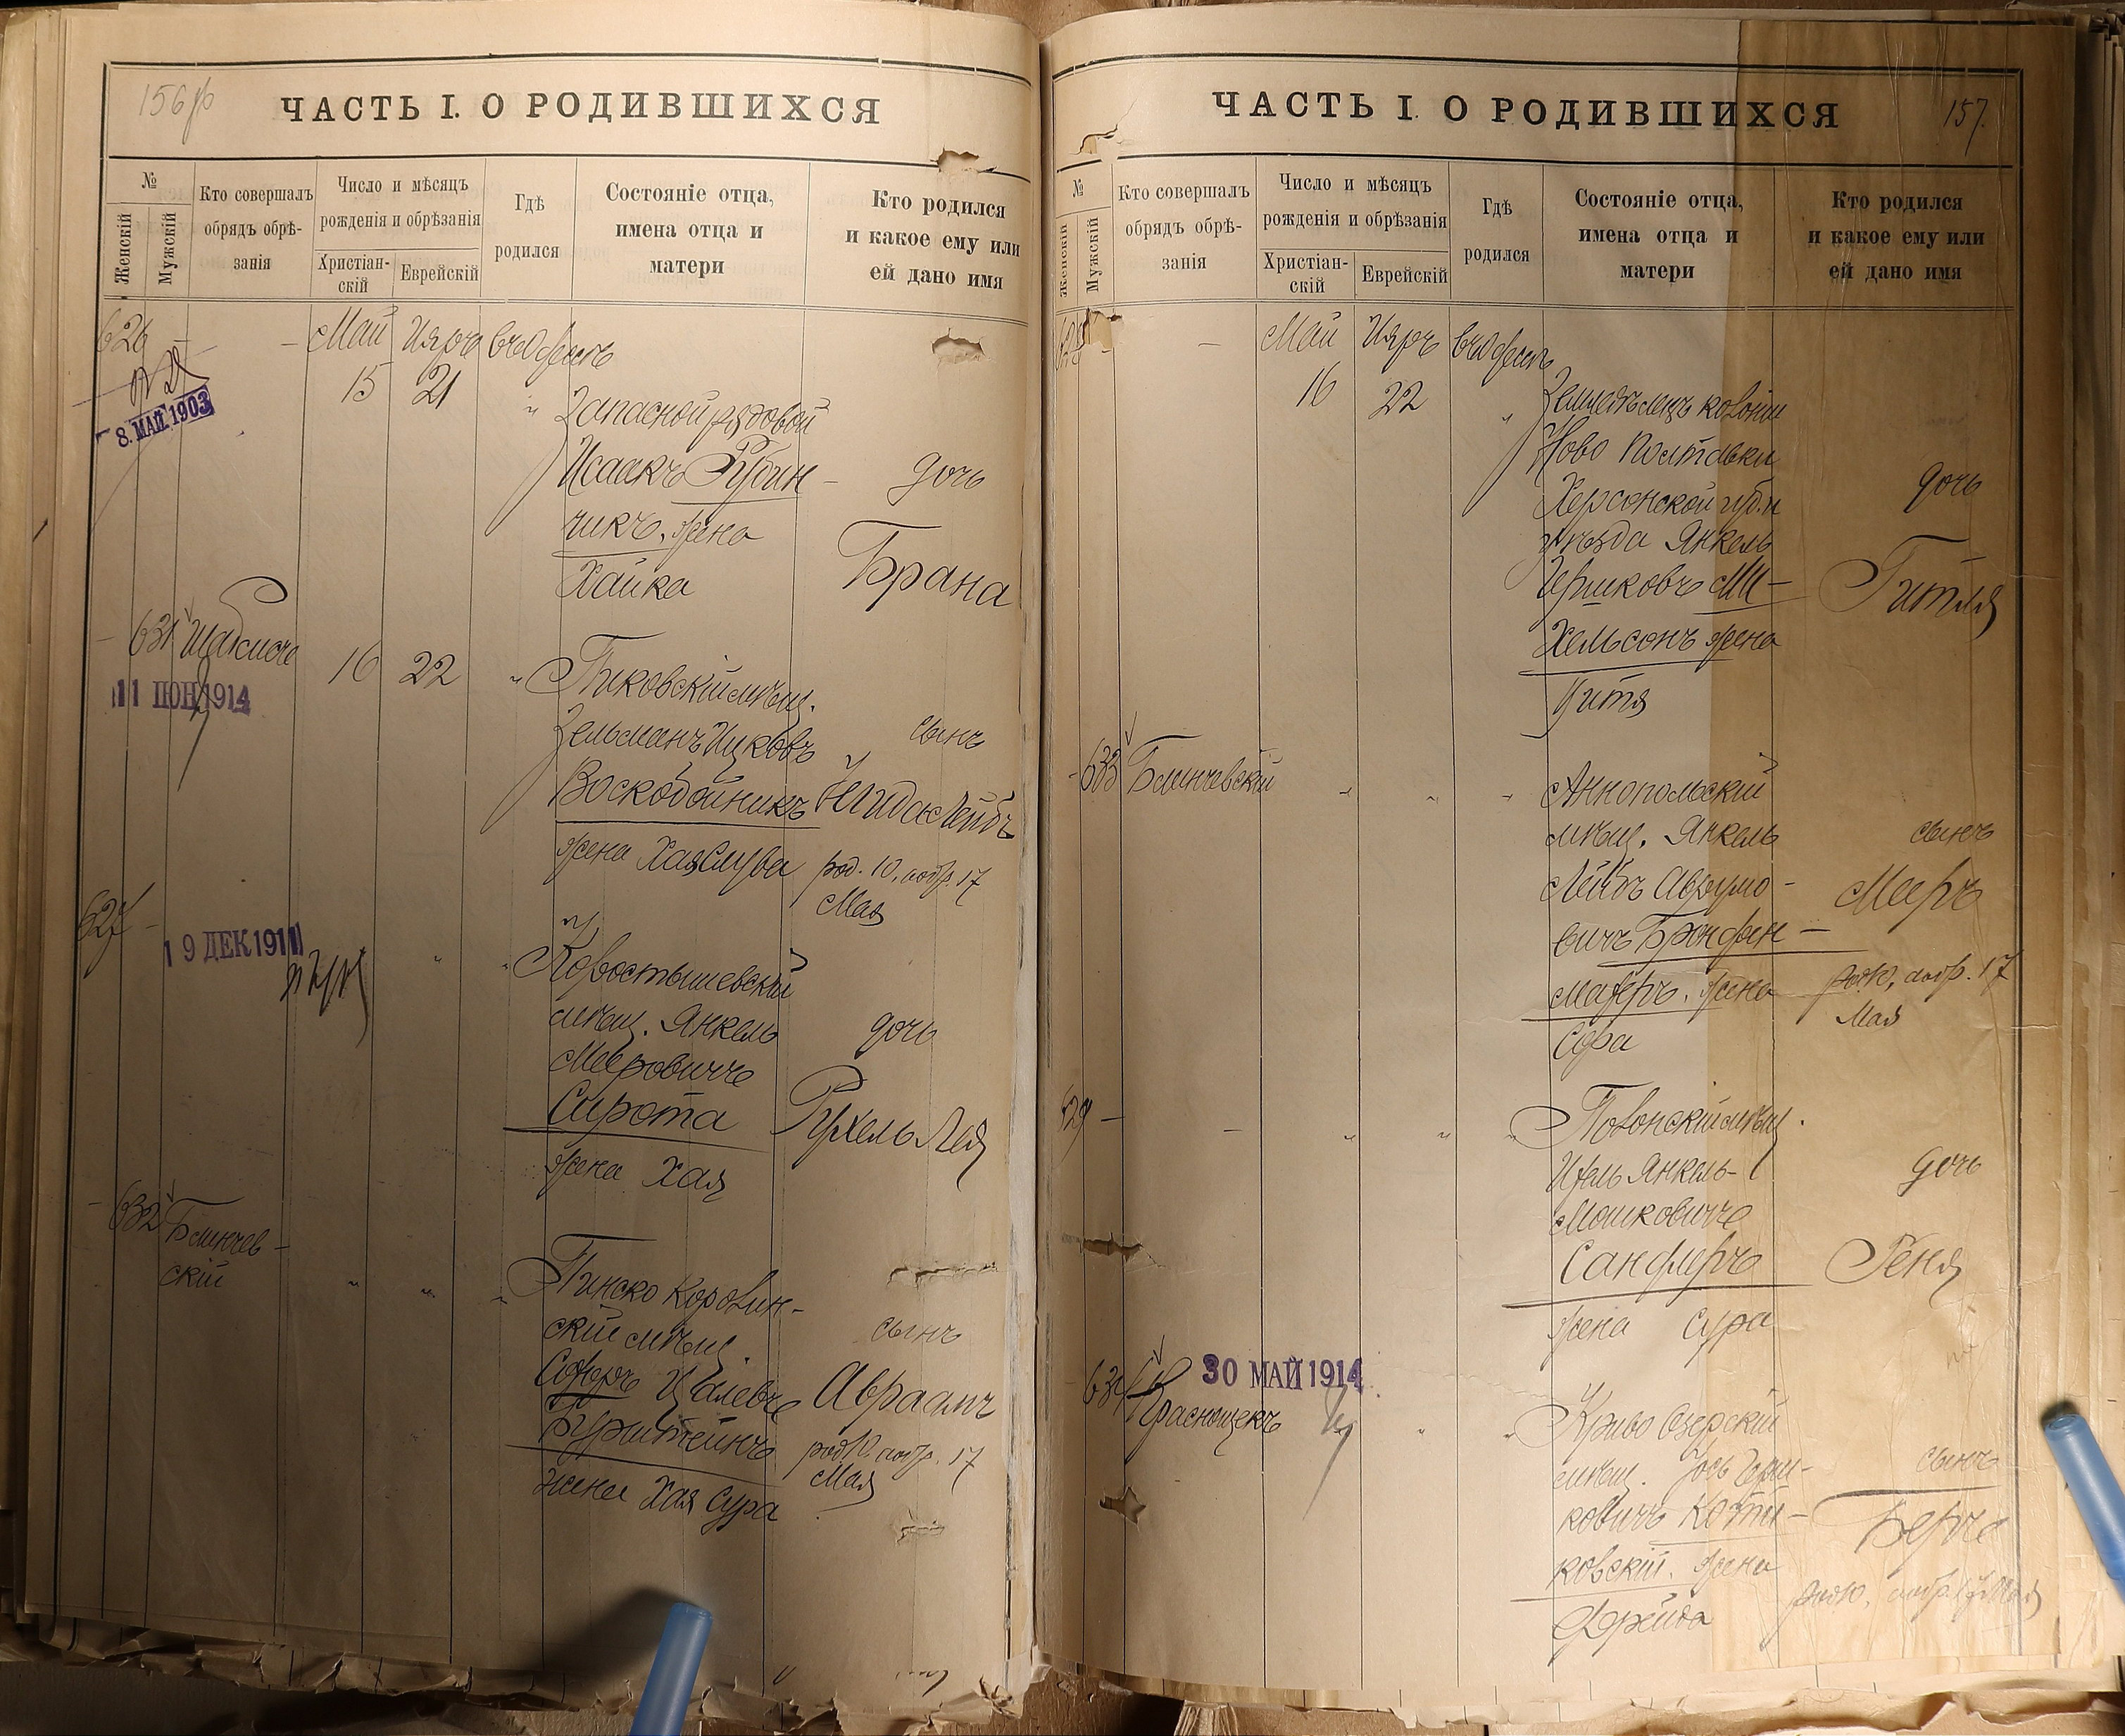 ЧАСТЬ I. О РОДИВШИХСЯ
№
Женскій
Мужскій
Кто совершалъ
обрядъ обрѣ-
занія
Число и мѣсяцъ
рожденія и обрѣзанія
Христіан-
скій
Еврейскій
Гдѣ
родился
Состояніе отца,
имена отца и
матери
Кто родился
и какое ему или
ей дано имя
626 - - Май Ияръ въ Одессѣ
8. МАЙ 1903
15 21 "
Запасной рядовой
Исаакъ Рубин-
чикъ, жена
Хайка
дочь
Брана
631
11 ІЮН 1914
16 22 "
мѣщ.
Зельманъ Ицковъ
Воскобойникъ
жена Хая
сынъ
Лейбъ
род. 10, 17
Мая
627 -
19 ДЕК 1911
" "
Коростышевскій
мѣщ. Янкель
Мееровичъ
Сирота
жена Хая
дочь
Рухель Лея
- 632 Блинчев-
скій
" " "
Пинско
скій мѣщ.
Бурштейнъ
жена Хая Сура
сынъ
Авраамъ
род. 10, 17
Мая
ЧАСТЬ I. О РОДИВШИХСЯ
157.
№
Женскій
Мужскій
Кто совершалъ
обрядъ обрѣ-
занія
Число и мѣсяцъ
рожденія и обрѣзанія
Христіан-
скій
Еврейскій
Гдѣ
родился
Состояніе отца,
имена отца и
матери
Кто родился
и какое ему или
ей дано имя
628 - - Май Ияръ въ Одессѣ
16 22 "
Земледѣлецъ колоніи
Ново Полтавки
Херсонской губ. и
уѣзда Янкель
Гершковъ Ми-
хельсонъ жена
Гитя
дочь
Гитля
- 633 Блинчевскій " " "
Аннопольскій
мѣщ. Янкель
Лейбъ Аврумо-
вичъ Бронфен-
махеръ, жена
Сура
сынъ
Мееръ
род. 10, 17
Мая
629 - - " " "
мѣщ.
Янкель-
Мошковичъ
Санфиръ
жена Сура
дочь
Геня
634 Краснощекъ
30 МАЙ 1914
" "
Криво Озерскій
мѣщ. Іось Герш-
ковичъ Коти-
ковскій. жена
Фрейда
сынъ
Беръ